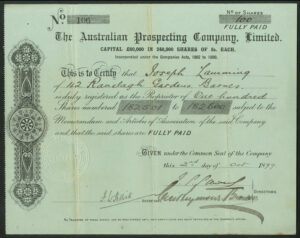 No 106
No OF SHARES
100
FULLY PAID
The Australian Prospecting Company, Limited.
CAPITAL £60,000 IN 240,000 SHARES OF 5s. EACH.
Incorporated under the Companies Acts, 1862 to 1890.
This is to Certify that Joseph Lamming
of 42 Ranelagh Gardens Barnes
is duly registered as the Proprietor of One hundred
Shares numbered 182501 to 182600 subject to the
Memorandum and Articles of Association of the said Company
and that the said shares are FULLY PAID.
GIVEN under the Common Seal of the Company
this 2nd day of Oct 1897
DIRECTORS